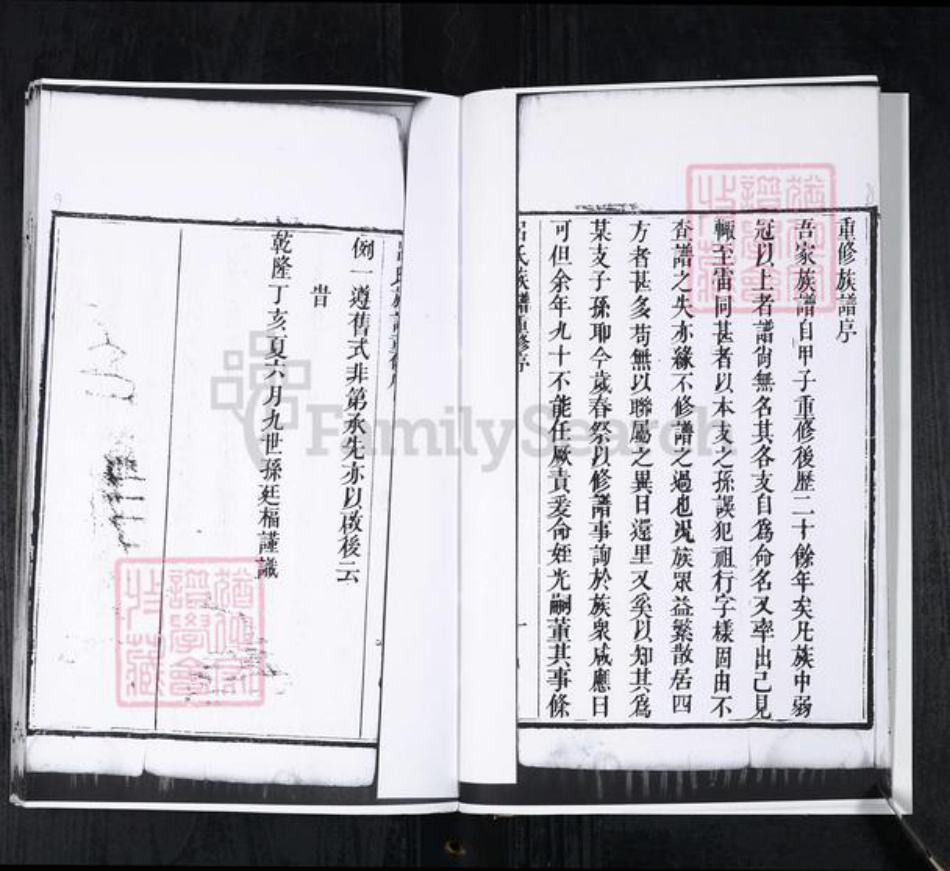 重修族譜序
吾家族譜自甲子重修後歷二十餘年矣凡族中弱
冠以上者譜尙無名其各支自爲命名又率出己見
輙至雷同甚者以本支之孫誤犯祖行字樣固由不
查譜之失亦緣不修譜之過也况族眾益繁散居四
方者甚多苟無以聯屬之異日還里又奚以知其爲
某支子孫耶今歲春祭以修譜事詢於族衆咸應曰
可但余年九十不能任厥責爰命姪光嗣董其事條
呂氏族譜重修序
一
例一遵舊式非第承先亦以啟後云
旹
乾隆丁亥夏六月九世孫廷楅謹識
FamilySearch